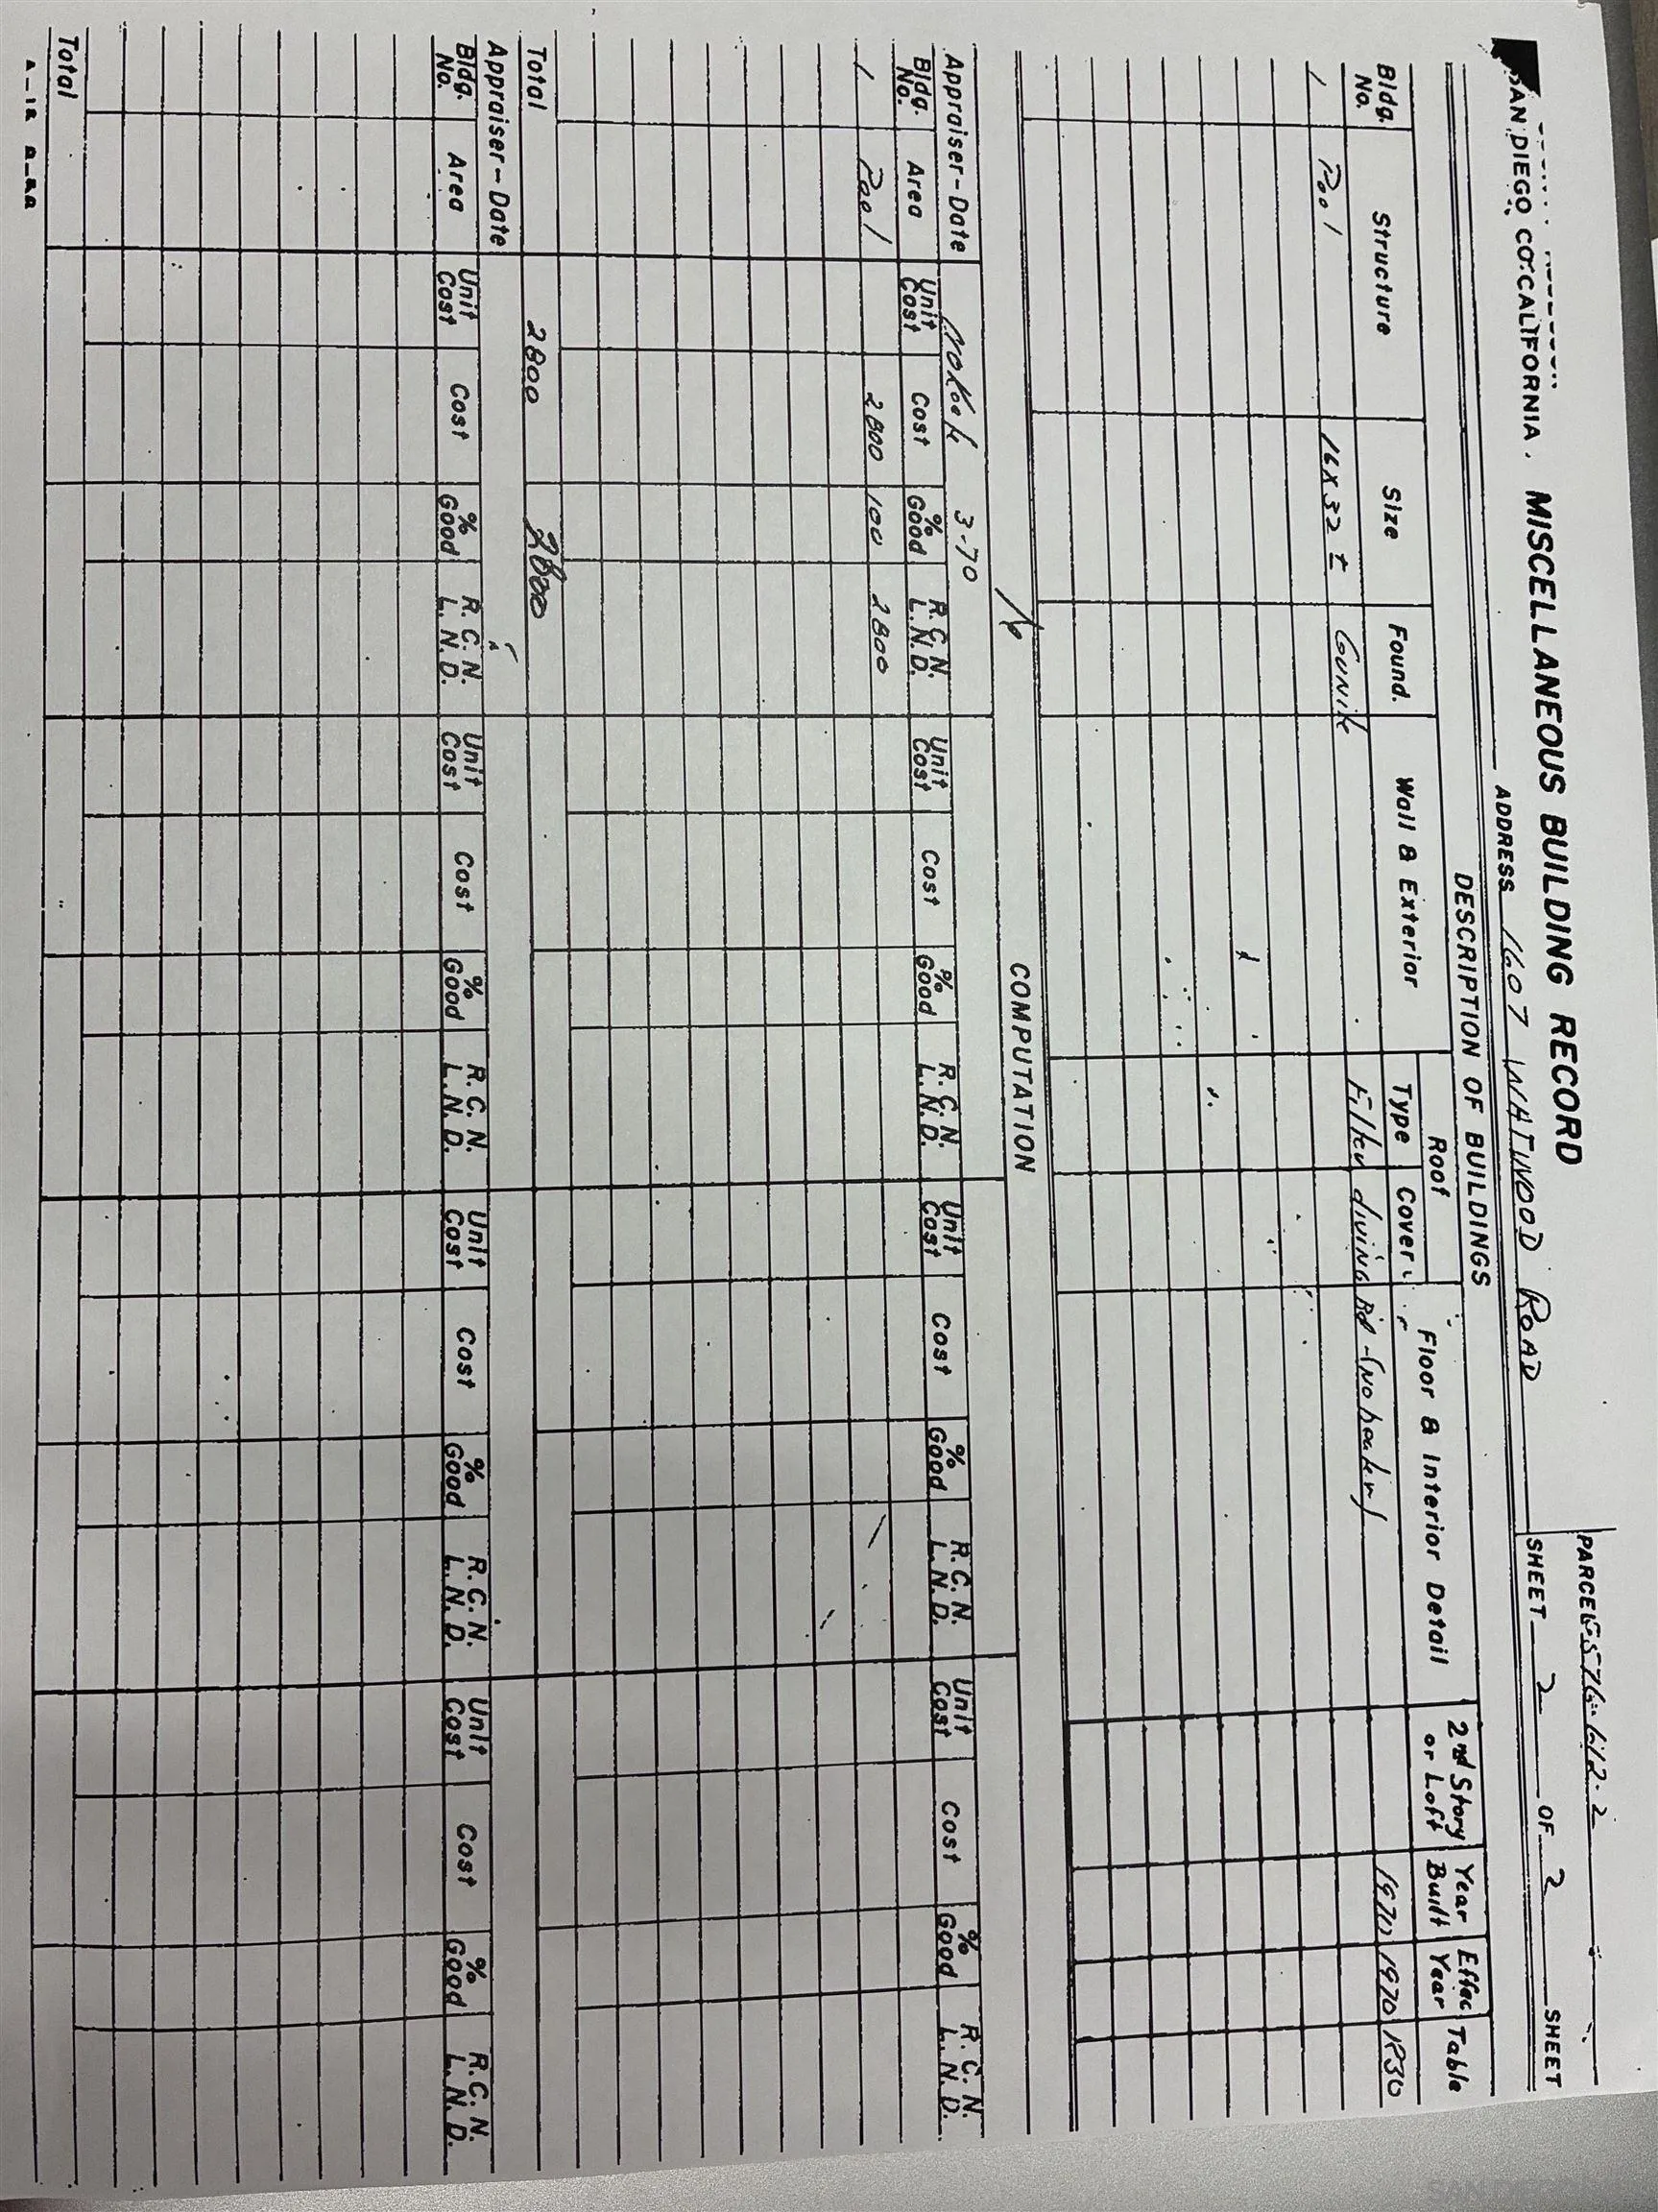 SAN DIEGO CO. CALIFORNIA. MISCELLANEOUS BUILDING RECORD
ADDRESS 1607 WHITWOOD ROAD
SHEET 2 OF 2 SHEET
DESCRIPTION OF BUILDINGS
Bldg. No. Structure Size Found. Wall & Exterior Roof Type Cover Floor & Interior Detail 2nd Story or Loft Year Built Effec Year Table
1 Pool 16X32 ± Gunit Filter diving Bd - (no heater) 1970 1970
COMPUTATION
Appraiser-Date 3-70
Bldg. No. Area Unit Cost Cost % Good R.C.N. L.N.D. Unit Cost Cost % Good R.C.N. L.N.D. Unit Cost Cost % Good R.C.N. L.N.D. Unit Cost Cost % Good R.C.N. L.N.D.
1 Pool 2800 100 2800
Total 2800 2800
Appraiser-Date
Bldg. No. Area Unit Cost Cost % Good R.C.N. L.N.D. Unit Cost Cost % Good R.C.N. L.N.D. Unit Cost Cost % Good R.C.N. L.N.D. Unit Cost Cost % Good R.C.N. L.N.D.
Total